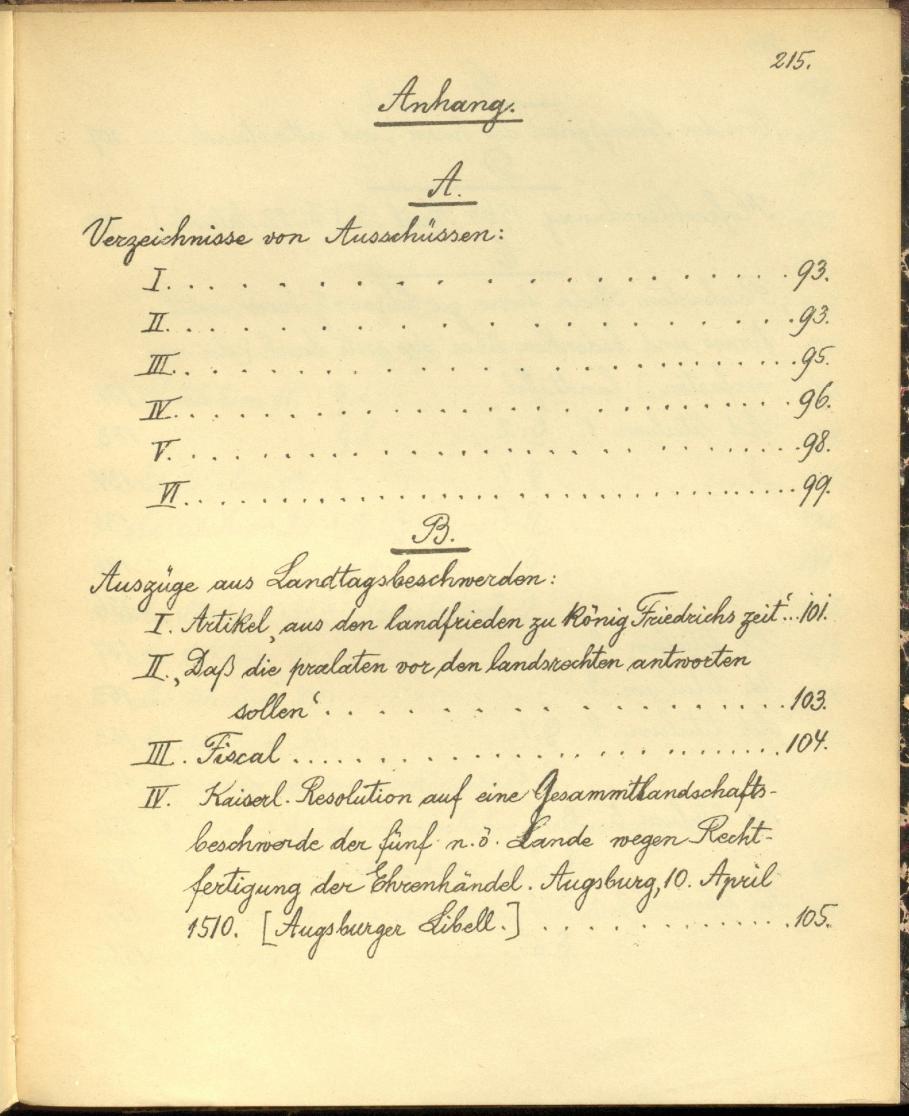 215.
Anhang.
A.
Verzeichnisse von Ausschüssen:
I. . . . . . . . . . . . . . . . . . . . 93.
II. . . . . . . . . . . . . . . . . . . . 93.
III. . . . . . . . . . . . . . . . . . . . 95.
IV. . . . . . . . . . . . . . . . . . . . 96.
V. . . . . . . . . . . . . . . . . . . . 98.
VI. . . . . . . . . . . . . . . . . . . . 99.
B.
Auszüge aus Landtagsbeschwerden:
I. Artikel ‚aus den landfrieden zu könig Friedrichs zeit‘...101.
II. ‚Daß die pralaten vor den landsrechten antworten
sollen‘. . . . . . . . . . . . . . . . 103.
III. Fiscal . . . . . . . . . . . . . . . . . . 104.
IV. Kaiserl. Resolution auf eine Gesammtlandschafts-
beschwerde der fünf n.ö. Lande wegen Recht-
fertigung der Ehrenhändel. Augsburg, 10. April
1510. [Augsburger Libell.] . . . . . . . . . . . 105.